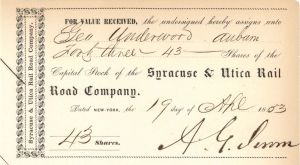 Syracuse & Utica Rail Road Company.
FOR VALUE RECEIVED, the undersigned hereby assigns unto
Geo Underwood Auburn
Forty three 43 Shares of the
Capital Stock of the Syracuse & Utica Rail
Road Company.
Dated NEW-YORK, the 19 day of Apl 1853
43 Shares.
A. G.